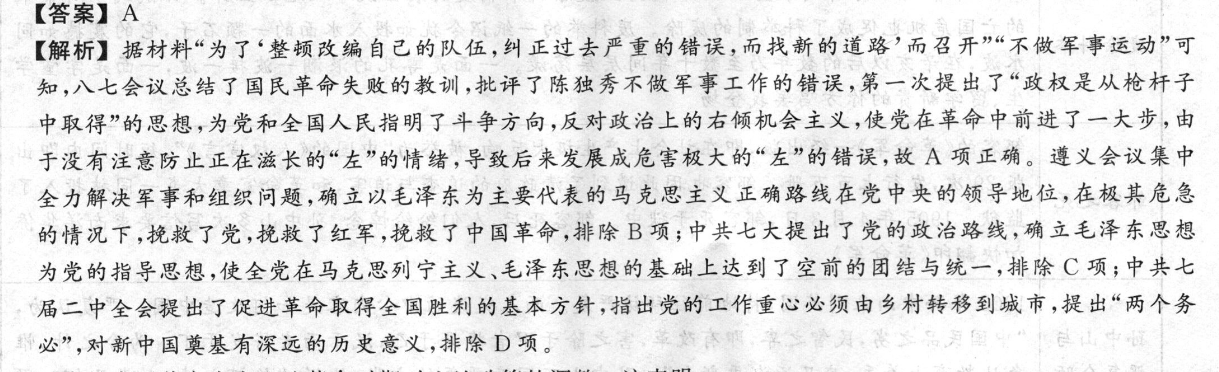 【答案】A
【解析】据材料“为了‘整顿改编自己的队伍,纠正过去严重的错误,而找新的道路’而召开”“不做军事运动”可
知,八七会议总结了国民革命失败的教训,批评了陈独秀不做军事工作的错误,第一次提出了“政权是从枪杆子
中取得”的思想,为党和全国人民指明了斗争方向,反对政治上的右倾机会主义,使党在革命中前进了一大步,由
于没有注意防止正在滋长的“左”的情绪,导致后来发展成危害极大的“左”的错误,故 A 项正确。遵义会议集中
全力解决军事和组织问题,确立以毛泽东为主要代表的马克思主义正确路线在党中央的领导地位,在极其危急
的情况下,挽救了党,挽救了红军,挽救了中国革命,排除 B 项;中共七大提出了党的政治路线,确立毛泽东思想
为党的指导思想,使全党在马克思列宁主义、毛泽东思想的基础上达到了空前的团结与统一,排除 C 项;中共七
届二中全会提出了促进革命取得全国胜利的基本方针,指出党的工作重心必须由乡村转移到城市,提出“两个务
必”,对新中国奠基有深远的历史意义,排除 D 项。